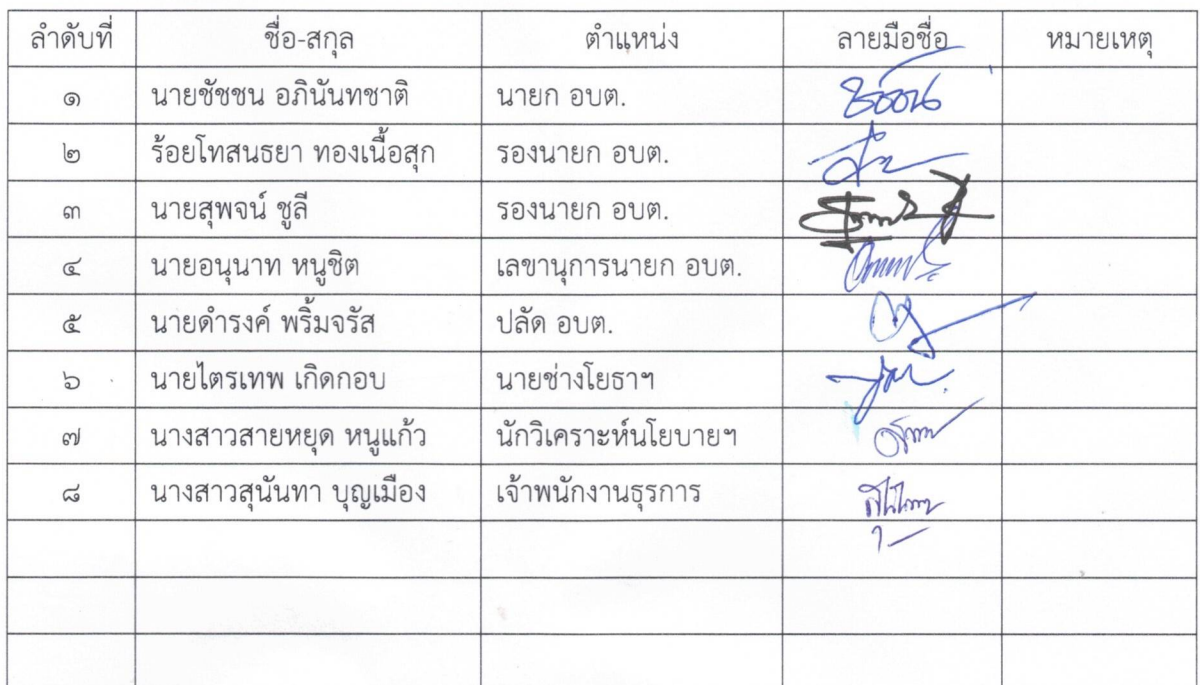 ลำดับที่ ชื่อ-สกุล ตำแหน่ง ลายมือชื่อ หมายเหตุ
๑ นายชัชชน อภินันทชาติ นายก อบต.
๒ ร้อยโทสนธยา ทองเนื้อสุก รองนายก อบต.
๓ นายสุพจน์ ชูลี รองนายก อบต.
๔ นายอนุนาท หนูชิต เลขานุการนายก อบต.
๕ นายดำรงค์ พริ้มจรัส ปลัด อบต.
๖ นายไตรเทพ เกิดกอบ นายช่างโยธาฯ
๗ นางสาวสายหยุด หนูแก้ว นักวิเคราะห์นโยบายฯ
๘ นางสาวสุนันทา บุญเมือง เจ้าพนักงานธุรการ